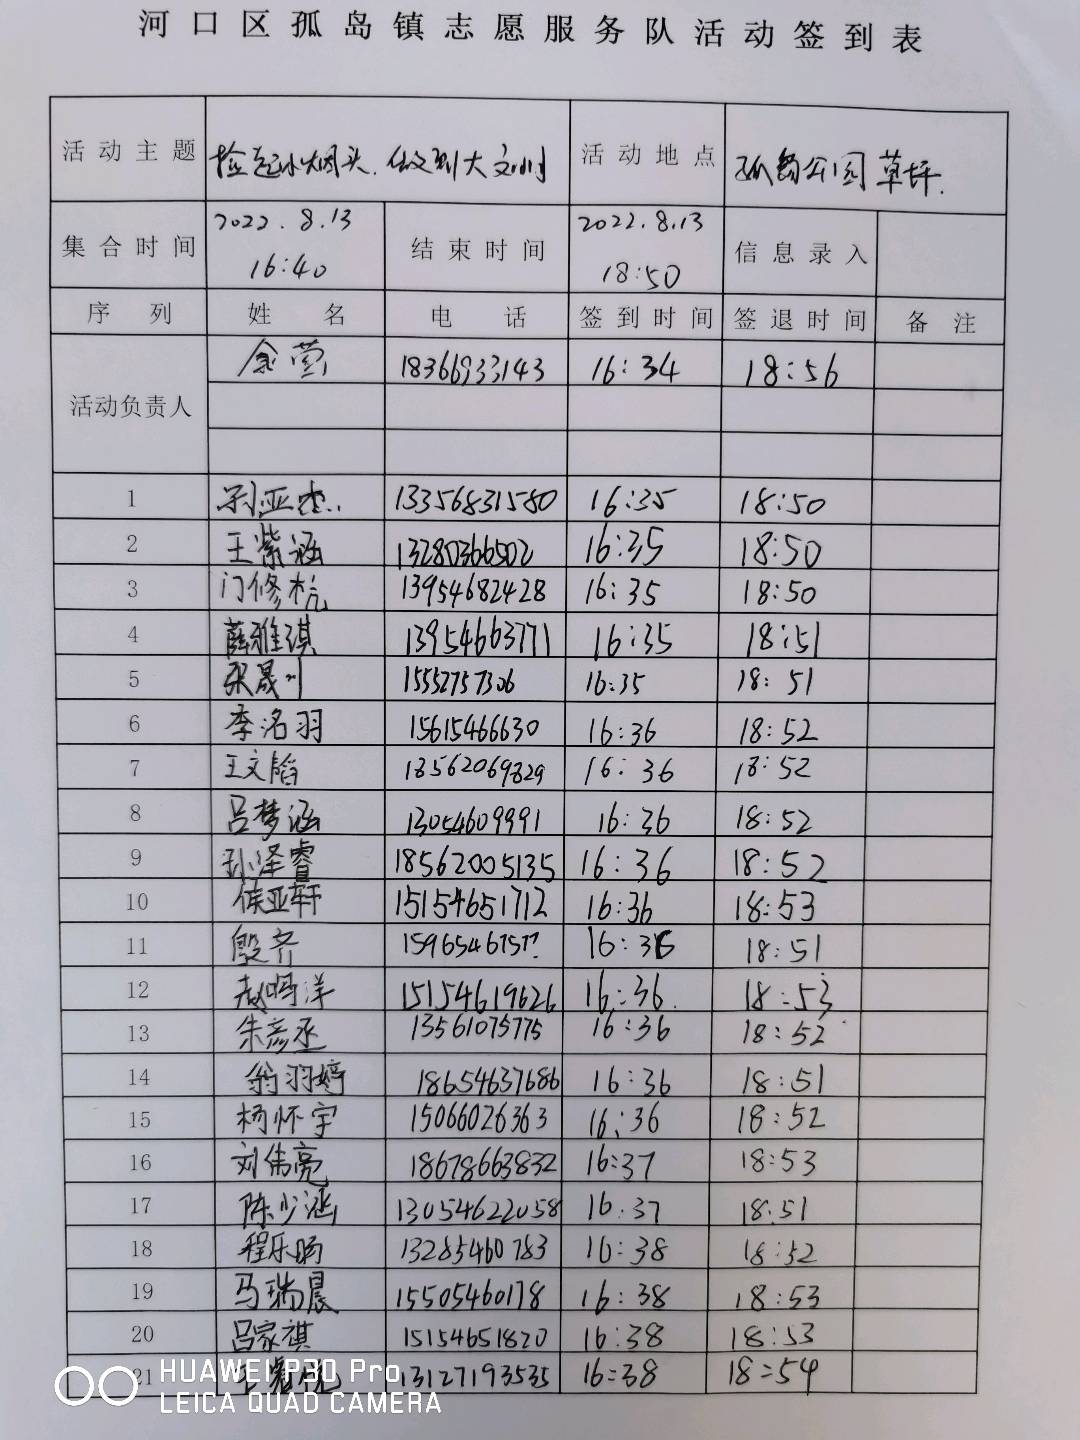 河口区孤岛镇志愿服务队活动签到表
活动主题 捡起小烟头.做到大文明 活动地点 孤岛公园草坪.
集合时间 2022.8.13 16:40 结束时间 2022.8.13 18:50 信息录入
序列 姓名 电话 签到时间 签退时间 备注
活动负责人 余莹 18366933143 16:34 18:56
1 孙亚杰 13356831580 16:35 18:50
2 王紫涵 13280366502 16:35 18:50
3 门修杭 13954682428 16:35 18:50
4 薛雅琪 13954663771 16:35 18:51
5 张晟川 15552757306 16:35 18:51
6 李洺羽 15615466630 16:36 18:52
7 王文韬 18562069829 16:36 18:52
8 吕梦涵 13054609991 16:36 18:52
9 孙泽睿 18562005135 16:36 18:52
10 侯亚轩 15154651712 16:36 18:53
11 殷齐 16:36 18:51
12 赵明洋 15154619626 16:36 18:53
13 朱彦丞 13561075775 16:36 18:52
14 翁羽婷 18654637686 16:36 18:51
15 杨怀宇 15066026363 16:36 18:52
16 刘伟亮 18678663832 16:37 18:53
17 陈少涵 13054622058 16:37 18:51
18 程乐 13285460783 16:38 18:52
19 马瑞晨 15505460178 16:38 18:53
20 吕家祺 15154651820 16:38 18:53
21 13127193535 16:38 18:54
HUAWEI P30 Pro
LEICA QUAD CAMERA